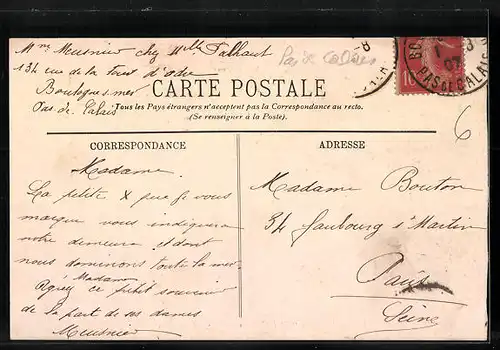 Mme Meusnier chez Mlle
134 rue de la
Boulogne s mer
Pas de Calais
Pas de Calais
CARTE POSTALE
Tous les Pays étrangers n'acceptent pas la Correspondance au recto.
(Se renseigner à la Poste).
CORRESPONDANCE
ADRESSE
Madame
La petite X que je vous
marque vous indiquera
notre demeure et dont
nous dominons toute la mer.
Madame
Agréez ce petit souvenir
de la part de ces dames
Meusnier
Madame Bouton
34 faubourg St Martin
Paris
Seine
07
PAS DE CALAIS
6